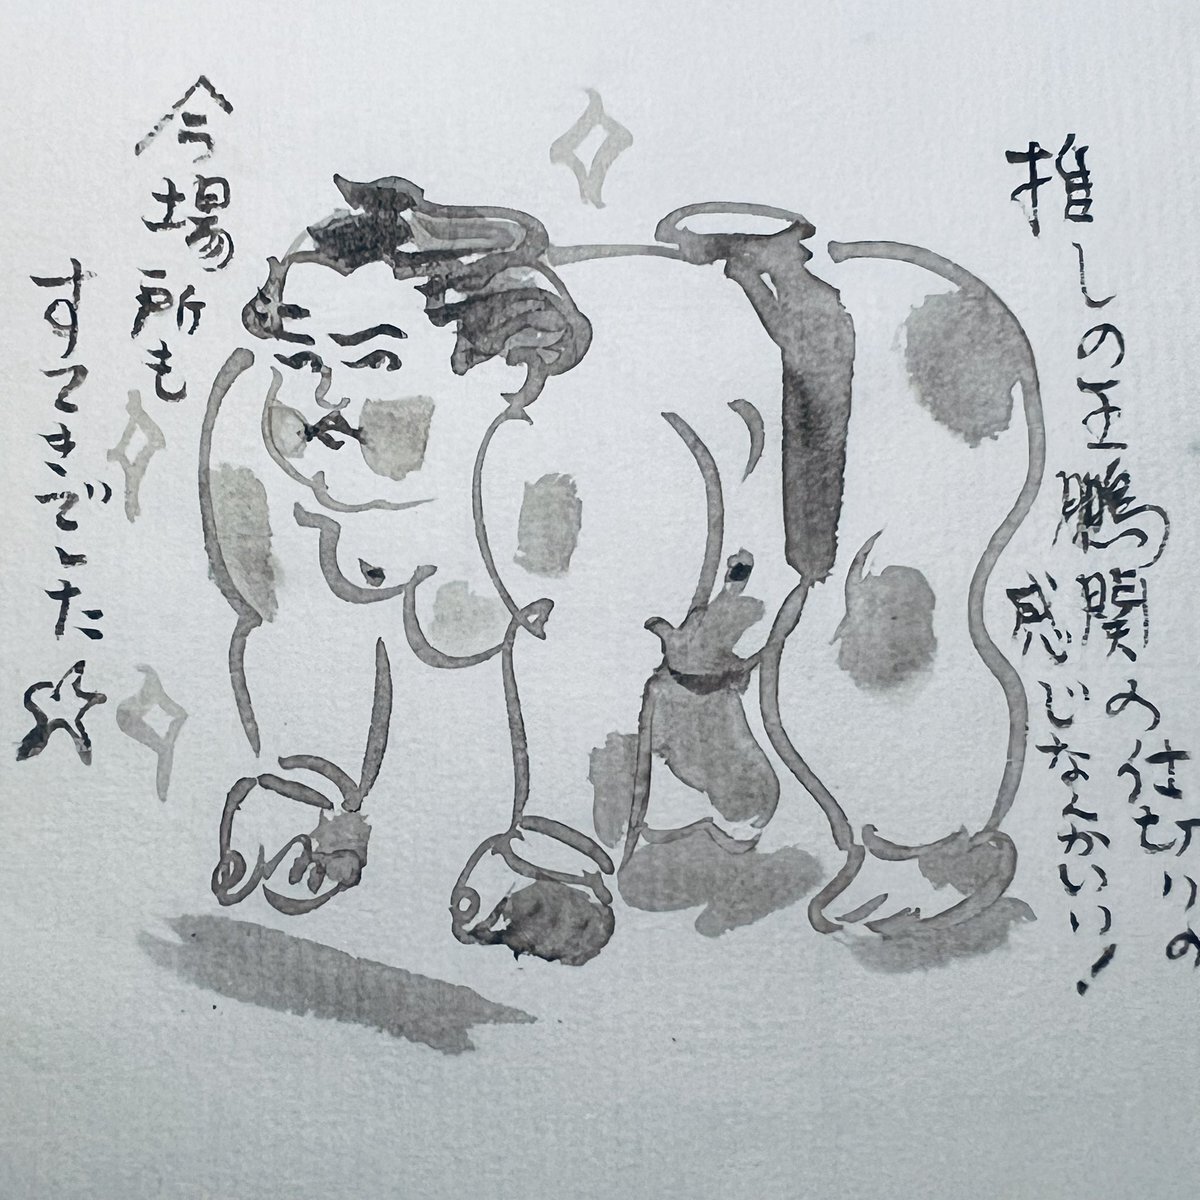 推しの玉鵬関の仕切りの
感じなんかいい!
今場所も
すてきでした☆